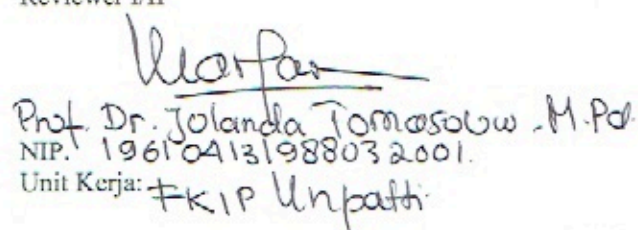 Reviewer I/II
Prof. Dr. Jolanda Tomasouw. M.Pd.
NIP. 196104131988032001.
Unit Kerja: FKIP Unpatti